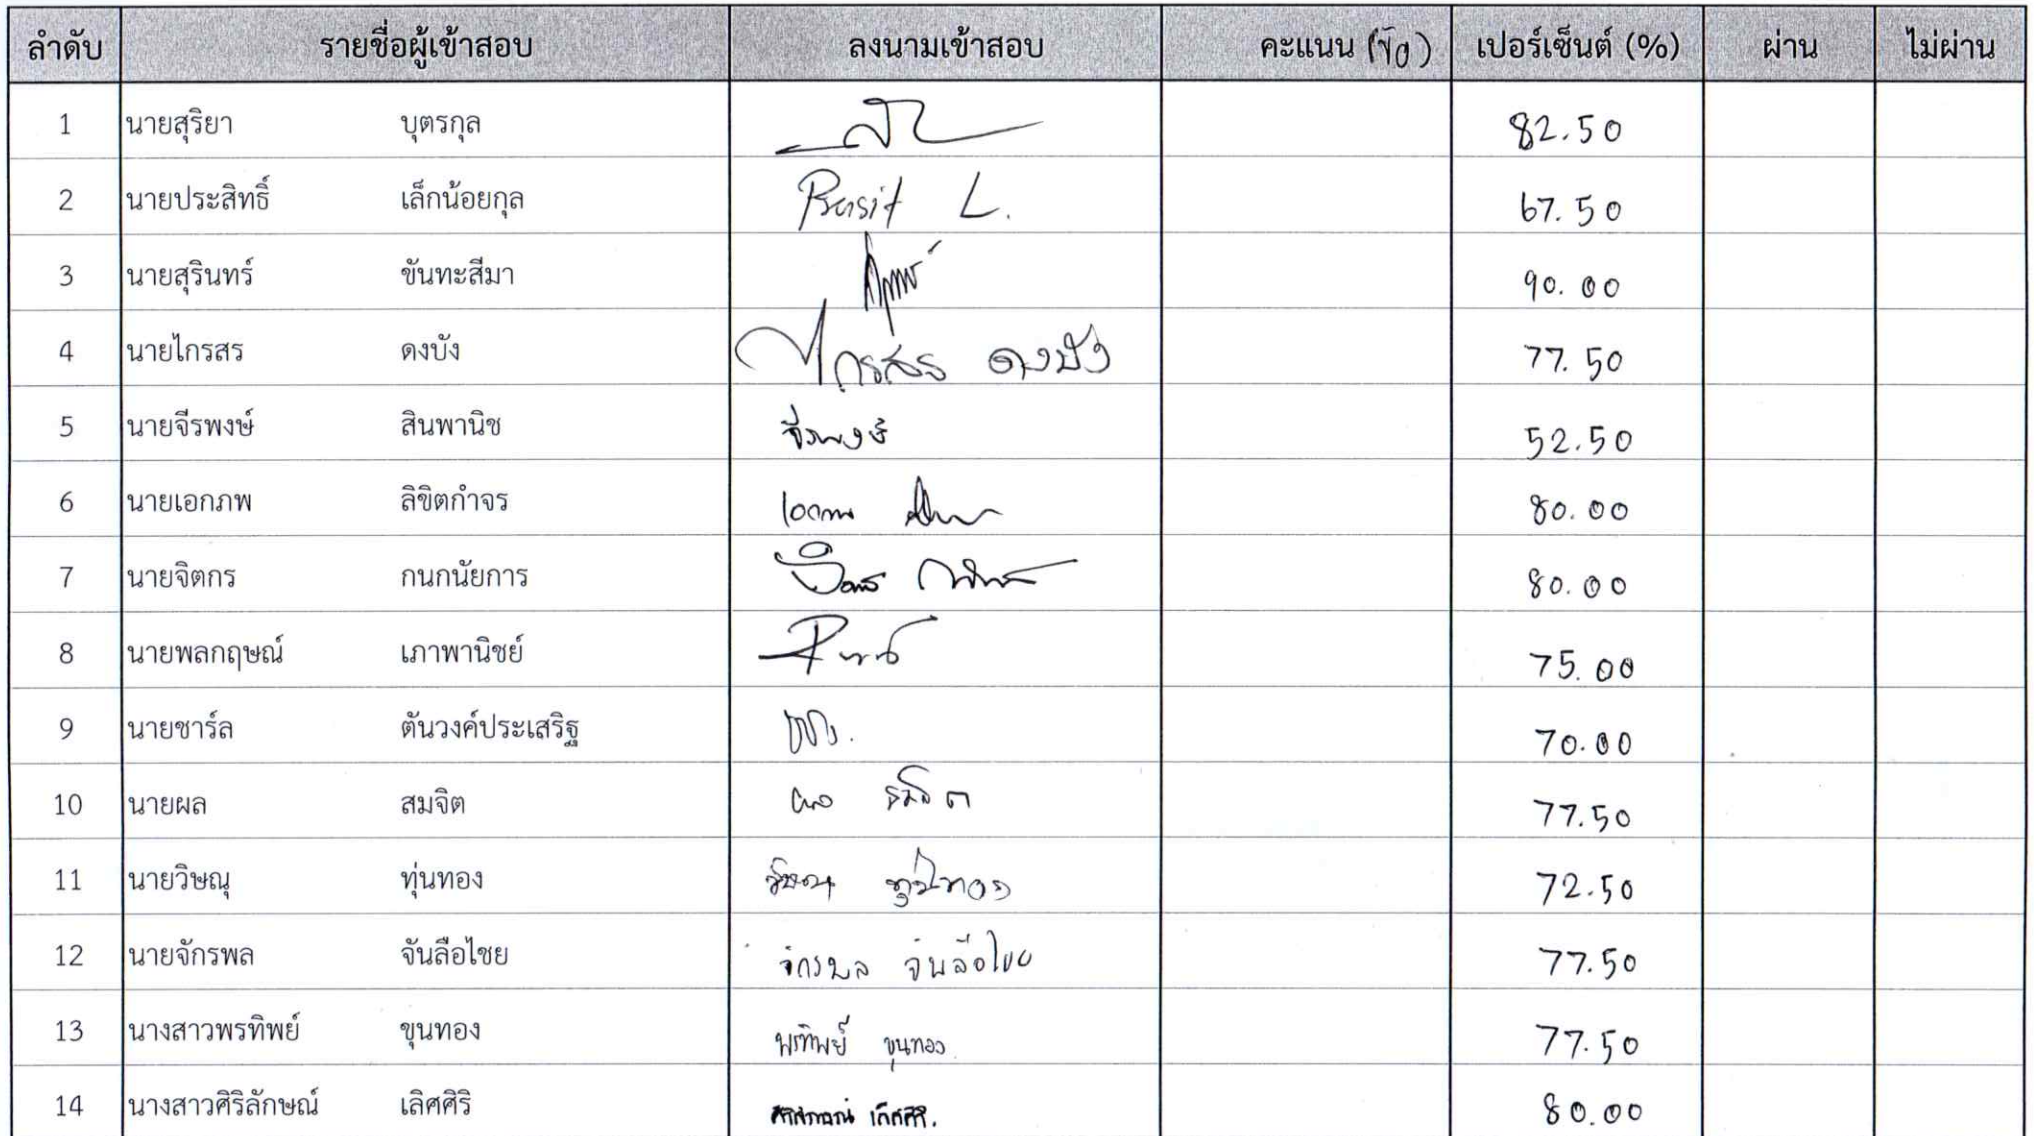 ลำดับ รายชื่อผู้เข้าสอบ ลงนามเข้าสอบ คะแนน (ข้อ) เปอร์เซ็นต์ (%) ผ่าน ไม่ผ่าน
1 นายสุริยา บุตรกุล 82.50
2 นายประสิทธิ์ เล็กน้อยกุล Prasit L. 67.50
3 นายสุรินทร์ ขันทะสีมา 90.00
4 นายไกรสร ดงบัง ไกรสร ดงบัง 77.50
5 นายจีรพงษ์ สินพานิช จีรพงษ์ 52.50
6 นายเอกภพ ลิขิตกำจร เอกภพ 80.00
7 นายจิตกร กนกนัยการ 80.00
8 นายพลกฤษณ์ เภาพานิชย์ 75.00
9 นายชาร์ล ตันวงค์ประเสริฐ 70.00
10 นายผล สมจิต ผล สมจิต 77.50
11 นายวิษณุ ทุ่นทอง วิษณุ ทุ่นทอง 72.50
12 นายจักรพล จันลือไชย จักรพล จันลือไชย 77.50
13 นางสาวพรทิพย์ ขุนทอง พรทิพย์ ขุนทอง 77.50
14 นางสาวศิริลักษณ์ เลิศศิริ ศิริลักษณ์ เลิศศิริ. 80.00